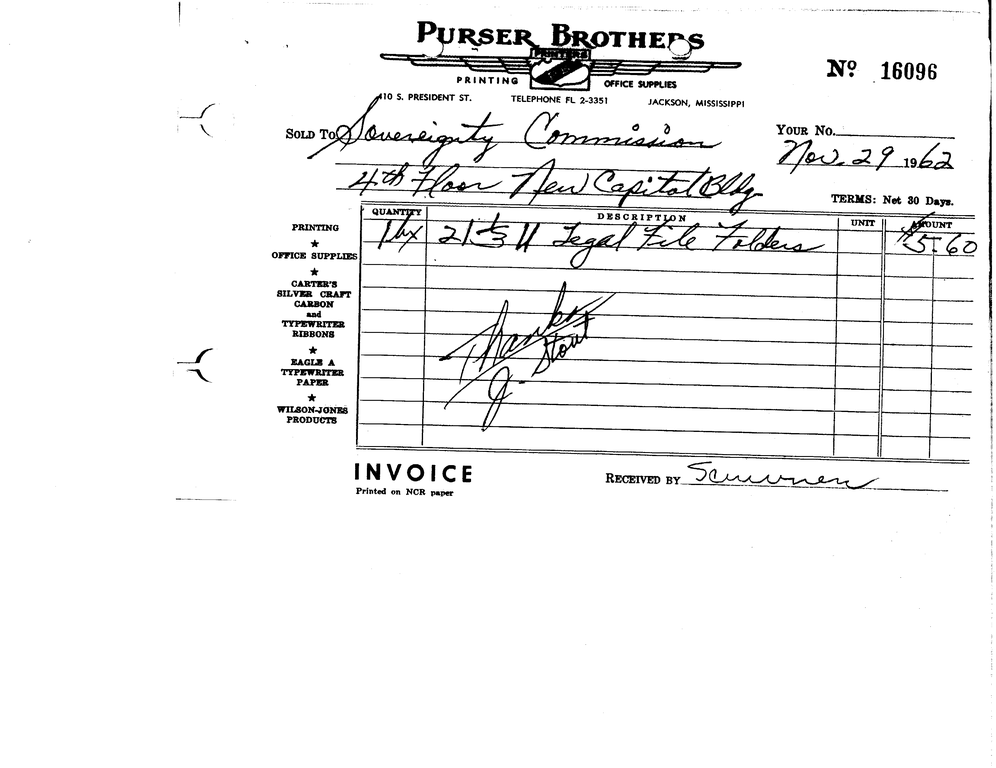 PURSER BROTHERS
PRINTERS
PRINTING OFFICE SUPPLIES
Nº 16096
410 S. PRESIDENT ST. TELEPHONE FL 2-3351 JACKSON, MISSISSIPPI
SOLD TO Sovereignty Commission
YOUR NO.
Nov. 29 1962
4th Floor New Capitol Bldg
TERMS: Net 30 Days.
QUANTITY DESCRIPTION UNIT AMOUNT
1 bx 21 1/3 Legal File Folders $5.60
PRINTING
★
OFFICE SUPPLIES
★
CARTER'S
SILVER CRAFT
CARBON
and
TYPEWRITER
RIBBONS
★
EAGLE A
TYPEWRITER
PAPER
★
WILSON-JONES
PRODUCTS
Thanks
J. Stout
INVOICE
Printed on NCR paper
RECEIVED BY